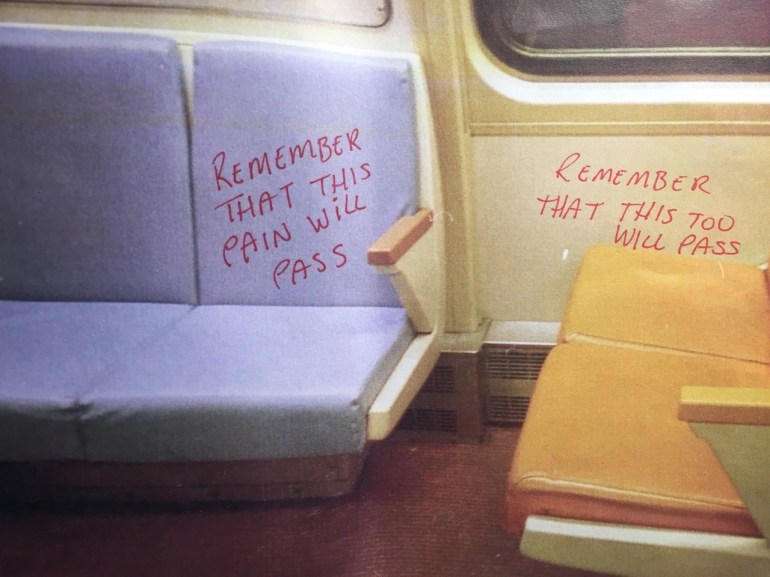 REMEMBER
THAT THIS
PAIN WILL
PASS
REMEMBER
THAT THIS TOO
WILL PASS